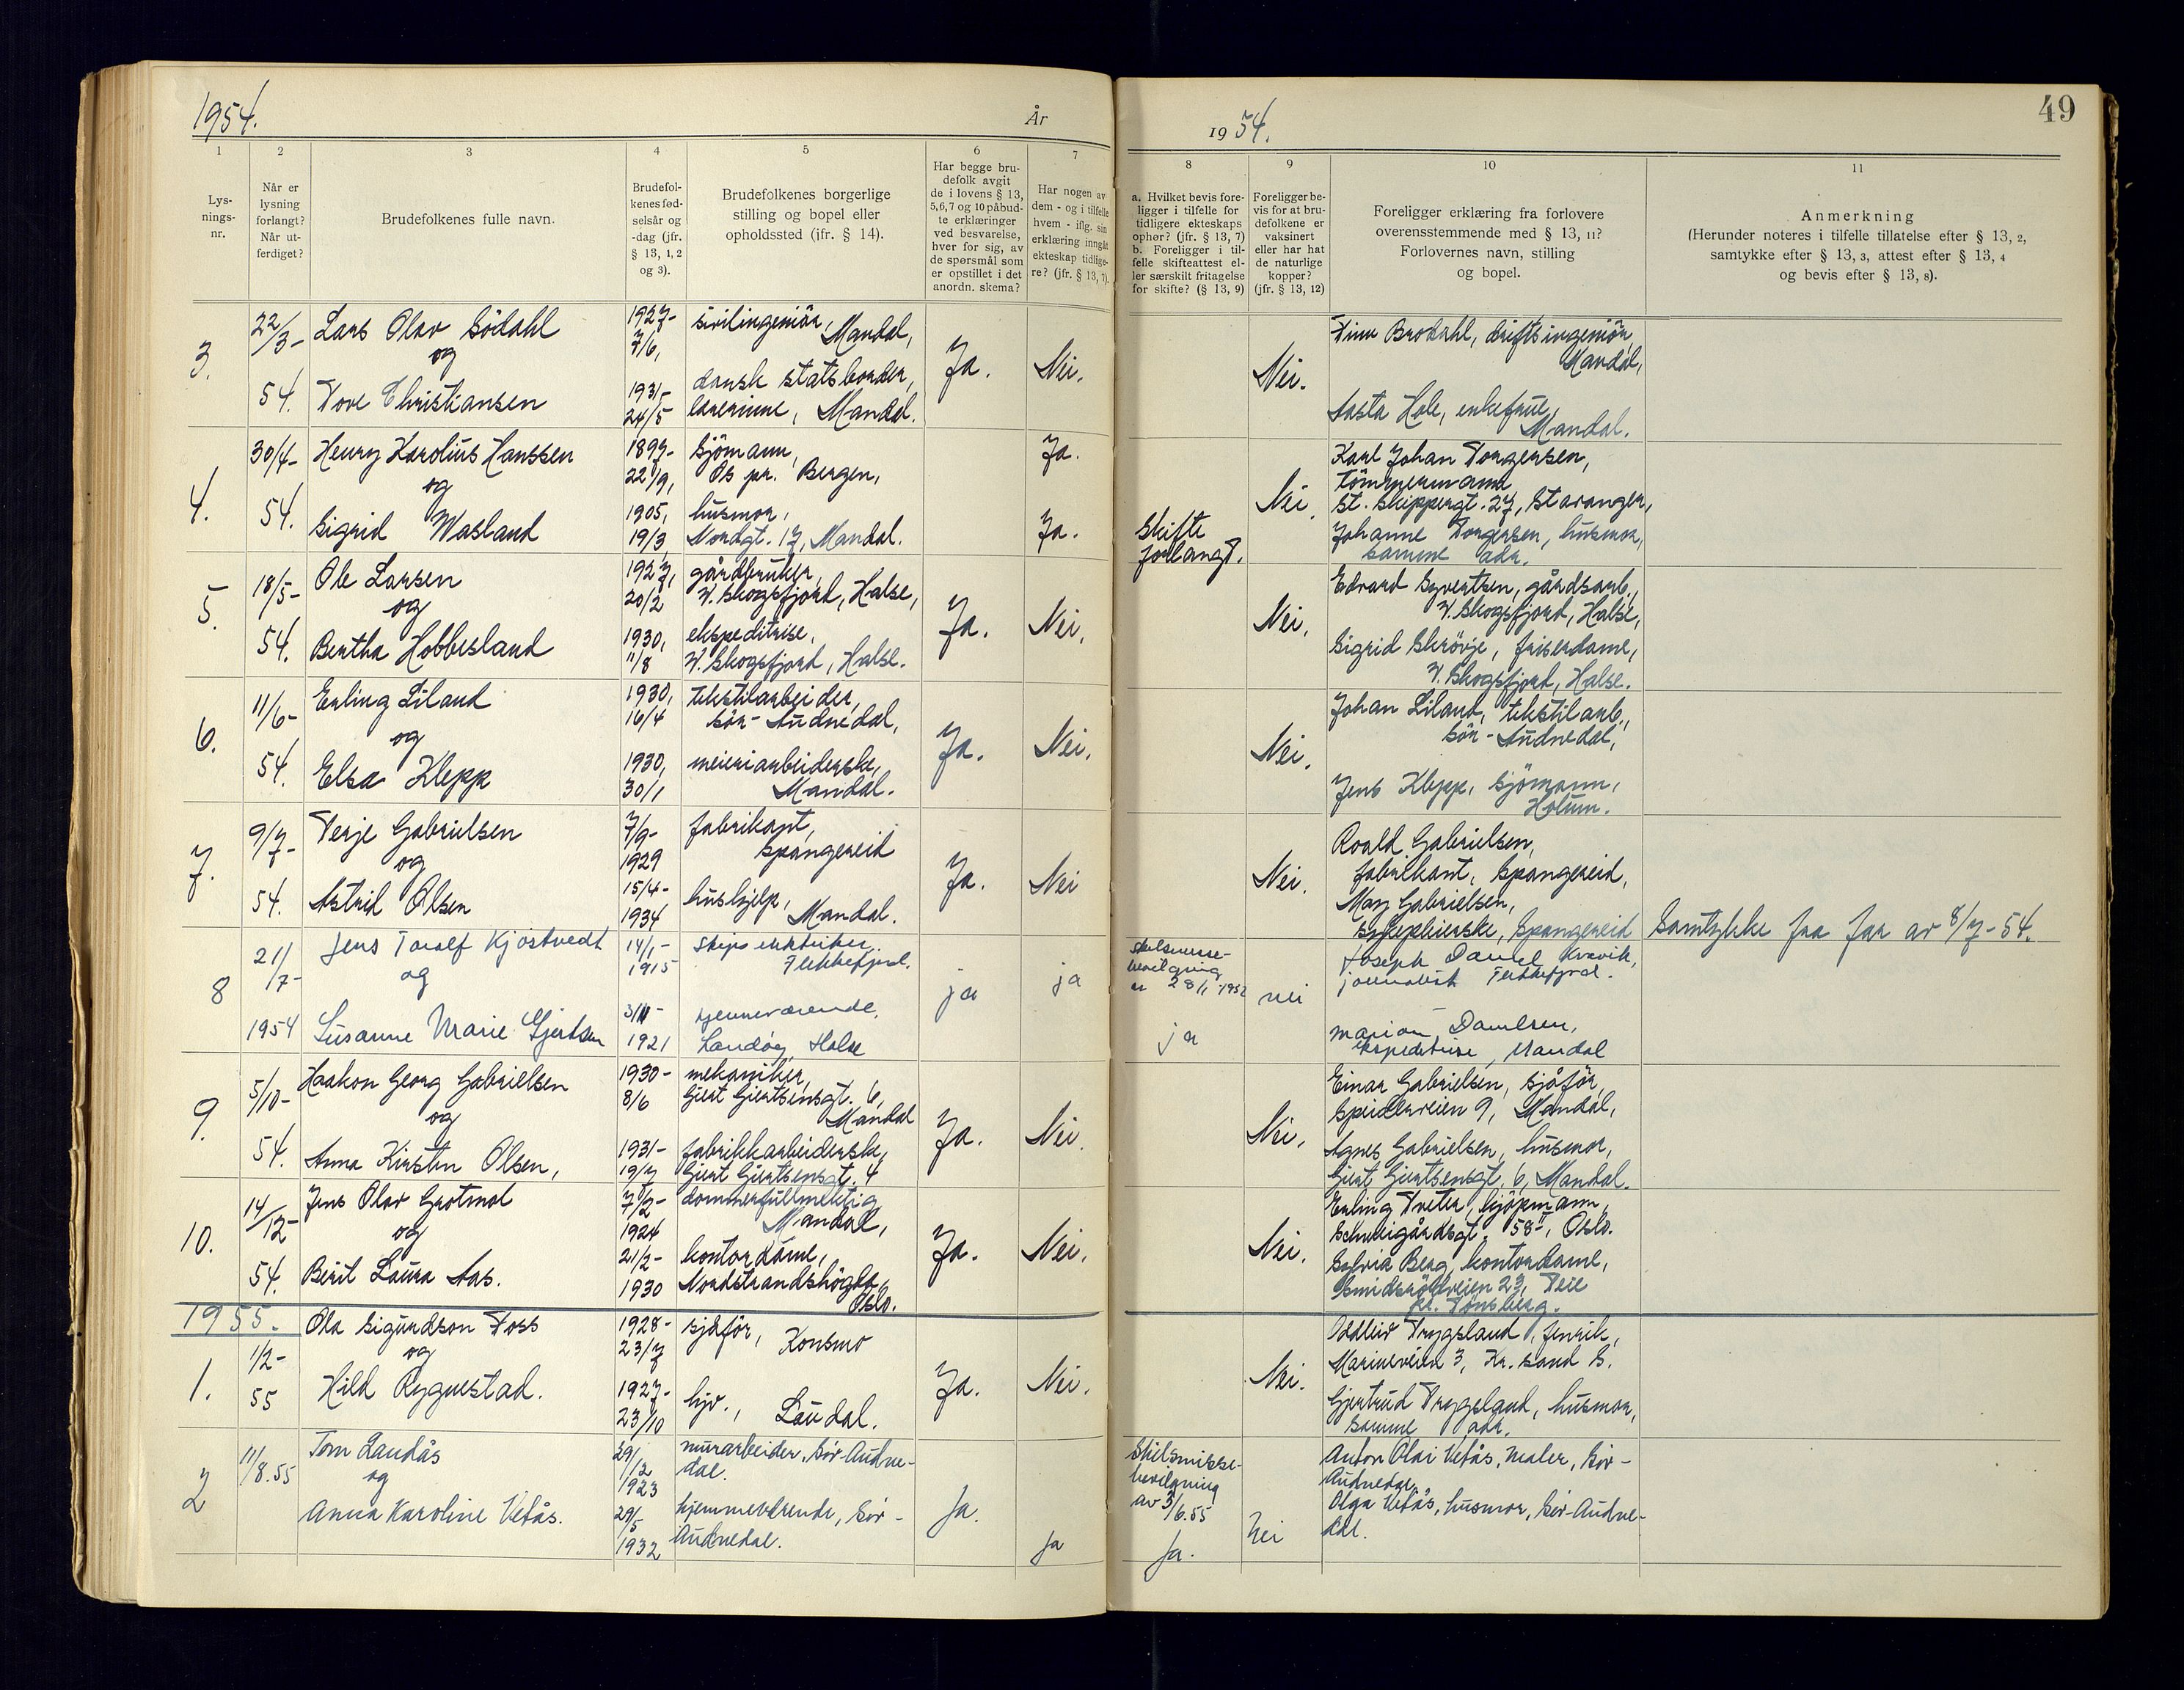 1954.
År
19 54.
49
1
2
3
4
5
6
7
8
9
10
11
Lys-
nings-
nr.
Når er
lysning
forlangt?
Når ut-
ferdiget?
Brudefolkenes fulle navn.
Brudefol-
kenes fød-
selsår og
-dag (jfr.
§ 13, 1, 2
og 3).
Brudefolkenes borgerlige
stilling og bopel eller
opholdssted (ifr. § 14).
Har begge bru-
defolk avgit
de i lovens § 13,
5,6,7 og 10 påbud-
te erklæringer
ved besvarelse,
hver for sig, av
de spørsmål som
er opstillet i det
anordn. skema?
Har nogen av
dem - og i tilfelle
hvem - iflg. sin
erklæring inngått
ekteskap tidlige-
re? (jfr. § 13, 7).
a. Hvilket bevis fore-
ligger i tilfelle for
tidligere ekteskaps
ophør? (jfr. § 13, 7)
b. Foreligger i til-
felle skifteattest el-
ler særskilt fritagelse
for skifte? (§ 13, 9)
Foreligger be-
vis for at bru-
defolkene er
vaksinert
eller har hat
de naturlige
kopper?
(jfr. § 13, 12)
Foreligger erklæring fra forlovere
overensstemmende med § 13, 11?
Forlovernes navn, stilling
og bopel.
Anmerkning
(Herunder noteres i tilfelle tillatelse efter § 13, 2,
samtykke efter § 13, 3, attest efter § 13, 4
og bevis efter § 13, 8).
3.
22/3-
54.
Lars Olav Södahl
og
Tove Christiansen
1927-
7/6,
1931-
24/5
sivilingeniör,
Mandal,
dansk statsborger,
lærerinne, Mandal.
Ja.
Nei.
Nei.
Brodahl, driftsingeniör,
Mandal,
Aasta Hole, enkefrue,
Mandal.
4.
30/4-
54.
Henry Karolius Hanssen
og
Sigrid Wasland
1897-
22/9,
1905,
19/3
Sjömann,
Os pr. Bergen,
husmor,
Nordgt. 17, Mandal.
Ja.
Ja.
Skifte
forlangt.
Nei.
Karl Johan Torgersen,
tömmermann
St. Skippergt. 27, Stavanger,
Johanne Torgersen, husmor,
samme adr.
5.
18/5-
54.
Ole Larsen
og
Bertha Hobbesland
1927,
20/2
1930,
11/8
gårdbruker,
V. Skogsfjord, Halse,
ekspeditrise,
V. Skogsfjord, Halse.
Ja.
Nei,
Nei,
Edvard Syvertsen, gårdsarb.,
V. Skogsfjord, Halse,
Sigrid Skrövje, friserdame,
V. Skogsfjord, Halse.
6.
11/6-
54.
Erling Liland
og
Elsa Klepp
1930,
16/4
1930,
30/1
tekstilarbeider,
Sör-Audnedal,
meieriarbeiderske,
Mandal.
Ja.
Nei,
Nei.
Johan Liland, tekstilarb.,
Sör-Audnedal,
Jens Klepp, sjömann,
Holum.
7.
9/7-
54.
Terje Gabrielsen
og
Astrid Olsen
7/9-
1929
15/4-
1934
fabrikant,
Spangereid
hushjelp,
Mandal.
Ja.
Nei
Nei.
Roald Gabrielsen,
fabrikant, Spangereid,
Mary Gabrielsen,
sykepleierske, Spangereid
Samtykke fra far av 8/7-54.
8
21/7-
1954
Jens Toralf Kjöstvedt
og
Susanne Marie Gjertsen
14/1-
1915
3/11-
1921
Skipselektriker
Flekkefjord.
hjemmeværende,
Landöy, Halse
ja
ja
Skilsmisse-
bevilgning
av 28/1 1952
ja
nei
Joseph Daniel Kvavik,
journalist Flekkefjord.
Marion Danielsen,
ekspeditrise, Mandal
9.
5/10-
54.
Haakon Georg Gabrielsen
og
Anna Kirsten Olsen,
1930-
8/6
1931-
19/7
mekaniker,
Giert Giertsensgt. 6,
Mandal
fabrikkarbeiderske,
Giert Giertsensgt. 4
Ja.
Nei.
Nei,
Einar Gabrielsen, sjåför,
Speiderveien 9, Mandal,
Agnes Gabrielsen, husmor,
Giert Giertsensgt. 6, Mandal.
10.
14/12-
54.
Jens Olav Grotmol
og
Berit Laura Aas.
7/2-
1924
21/2-
1930
dommerfullmektig
Mandal,
kontordame,
Nordstrandshögda,
Oslo.
Ja.
Nei.
Nei.
Erling Tveter, kjöpmann,
Schweigårdsgt. 58 II, Oslo.
Sylvia Berg, kontordame,
Smidsrödveien 23, Teie
pr. Tönsberg.
1955.
1.
1/2-
55
Ola Sigurdson Foss
og
Hild Rygnestad.
1928-
23/7
1927-
23/10
sjåför, Konsmo
hjv., Laudal.
Ja.
Nei.
Nei.
Oddleiv Trygsland, fenrik,
Marineveien 3, Kr.sand S.
Gjertrud Trygsland, husmor,
samme adr.
2
11/8.55
Tom Landås
og
Anna Karoline Vetås.
29/12
1923
29/5
1932
murarbeider, Sör-Audne-
dal.
hjemmeværende, Sör-
Audnedal.
Ja.
Ja
Skilsmisse-
bevilgning
av 3/6.55
Ja.
Nei
Anton Olai Vetås, maler, Sör-
Audnedal,
Olga Vetås, husmor, Sör-Audne-
dal.